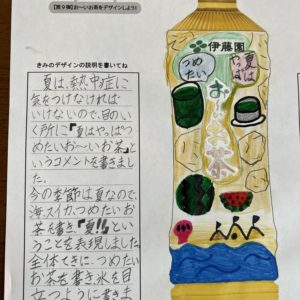 【第9弾】お〜いお茶をデザインしよう!
きみのデザインの説明を書いてね
夏は、熱中症に
気をつけなければ
いけないので、目のい
く所に『夏はやっぱつ
めたいお〜いお茶』と
いうコメントを書きまし
た。
今の季節は夏なので、
海、スイカ、つめたいお
茶を書き『夏!!』と
いうことを表現しました
全体てきに、つめたい
お茶を書き、氷を目
立つように書きま
伊藤園
夏はやっぱ
つめたい
お〜いお茶